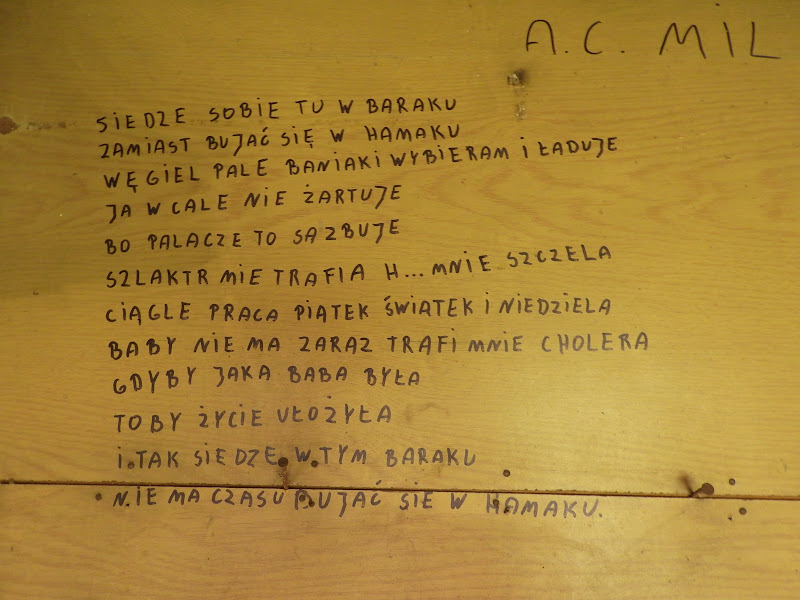 A.C. MiL
SiEDZE SOBiE TU W BARAKU
ZAMIAST BUJAĆ SIĘ W HAMAKU
WĘGIEL PALE BANIAKI WYBIERAM i ŁADUJE
JA WCALE NIE ŻARTUJE
BO PALACZE TO SĄ ZBUJE
SZLAKTR MIE TRAFIA H... MNIE SZCZELA
CIĄGLE PRACA PIĄTEK ŚWIĄTEK i NIEDZIELA
BABY NIE MA ZARAZ TRAFI MNIE CHOLERA
GDYBY JAKA BABA BYŁA
TOBY ŻYCIE UŁOŻYŁA
i TAK SIEDZE W TYM BARAKU
NIE MA CZASU BUJAĆ SIE W HAMAKU.